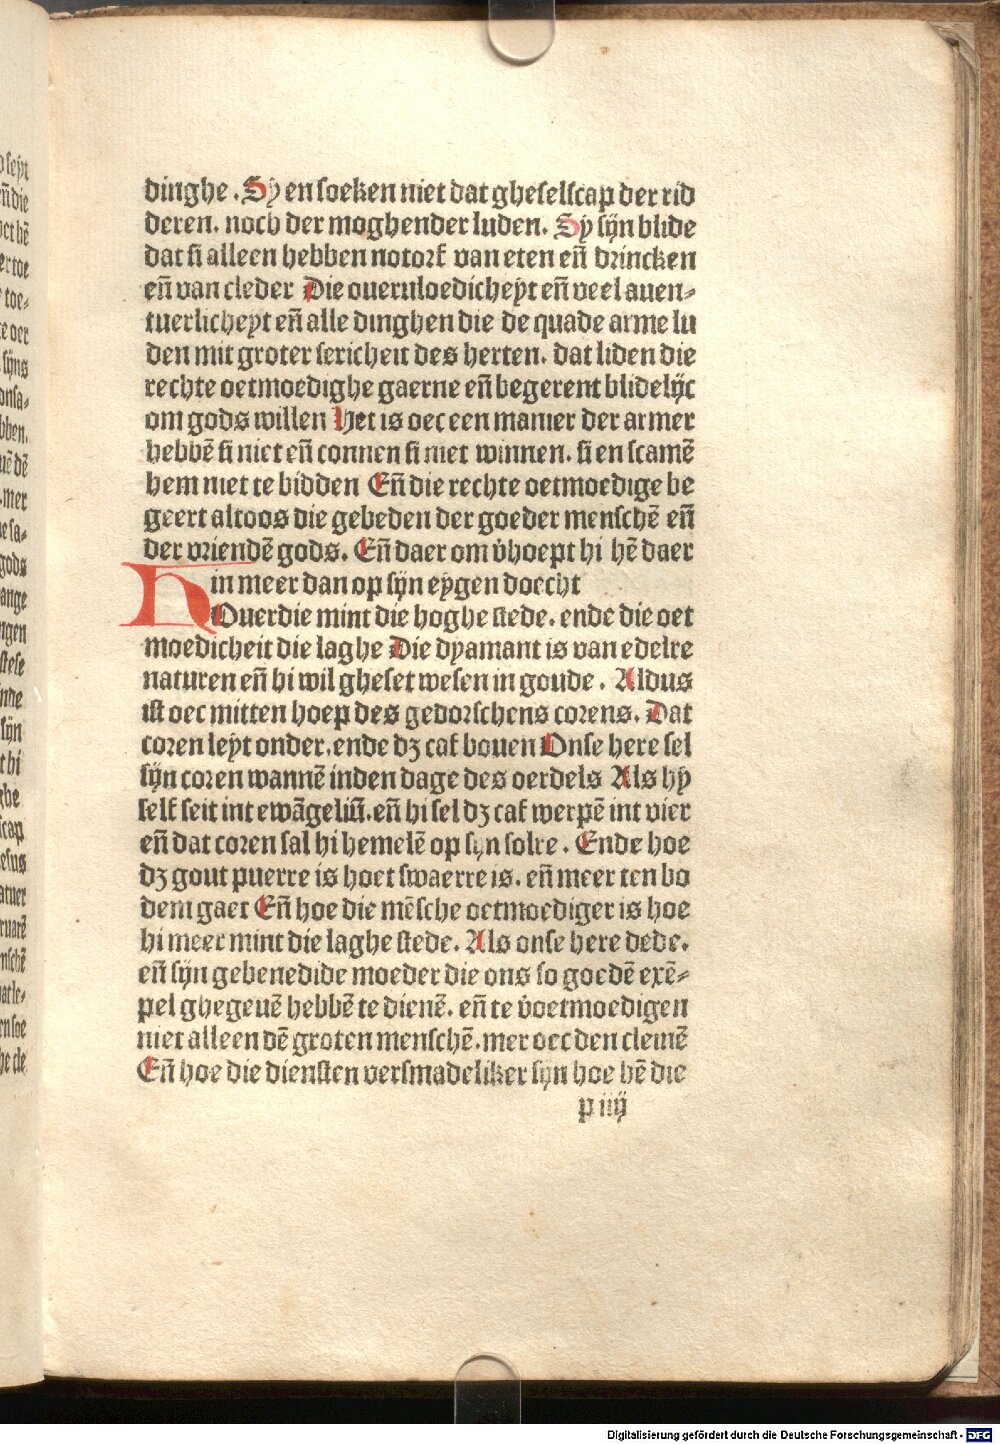 dinghe . Sy en soeken niet dat gheselscap der rid
deren. noch der moghender luden. Sy sijn blide
dat si alleen hebben notorf van eten eñ drincken
eñ van cleder Die overvloedicheyt eñ veel auen-
tuerlicheyt eñ alle dinghen die de quade arme lu
den mit groter sericheit des herten. dat liden die
rechte oetmoedighe gaerne eñ begerent blidelijc
om gods willen Het is oec een manier der armer
hebbē si niet eñ connen si niet winnen. si en scamē
hem niet te bidden Eñ die rechte oetmoedige be
geert altoos die gebeden der goeder menschē eñ
der vriendē gods. Eñ daer om v̄hoept hi hē daer
in meer dan op sijn eygen doecht
H Ouerdie mint die hoghe stede. ende die oet
moedicheit die laghe Die dyamant is van edelre
naturen eñ hi wil gheset wesen in goude. Aldus
ist oec mitten hoep des gedorschens corens. Dat
coren leyt onder. ende dz caf bouen Onse here sel
sijn coren wannē inden dage des oerdels Als hy
self seit int ewāgeliū. eñ hi sel dz caf werpē int vier
eñ dat coren sal hi hemelē op sijn solre. Ende hoe
dz gout puerre is hoet swaerre is. eñ meer ten bo
dem gaet Eñ hoe die mēsche oetmoediger is hoe
hi meer mint die laghe stede. Als onse here dede.
eñ sijn gebenedide moeder die ons so goedē exē-
pel ghegeuē hebbē te dienē. eñ te v̄oetmoedigen
niet alleen dē groten menschē. mer oec den cleinē
Eñ hoe die diensten versmadeliker sijn hoe hē die
p iiij
Digitalisierung gefördert durch die Deutsche Forschungsgemeinschaft - DFG